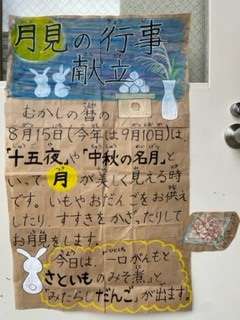 月見の行事
献立
むかしの暦の
8月15日(今年は9月10日)は
「十五夜」や「中秋の名月」と
いって月が美しく見える時
です。いもやおだんごをお供え
したり、すすきをかざったりして
お月見をします。
今日は、一口がんもと
さといものみそ煮」と
「みたらしだんご」が出ます。